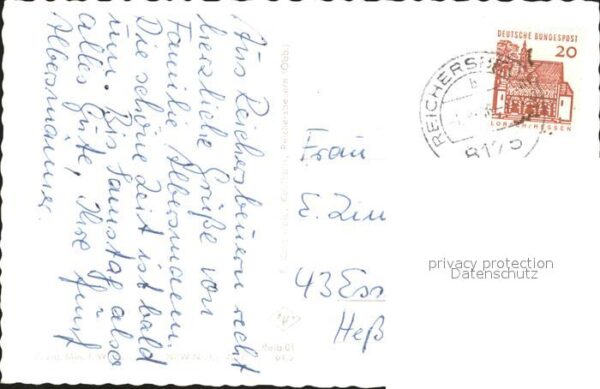 Aus Reichersbeuern recht
herzliche Grüße von
Familie Albersmann.
Die schöne Zeit ist bald
um. Bis Samstag also
alles Gute, Ihre fünf
Albersmänner.
DEUTSCHE BUNDESPOST
20
LORSCH/HESSEN
REICHERSBEUERN
8175
Frau
E. Zim
43 Ess
Heß
privacy protection
Datenschutz